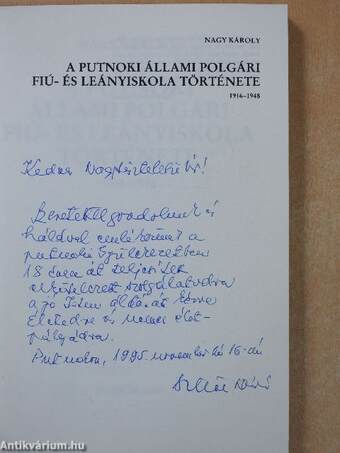 NAGY KÁROLY
A PUTNOKI ÁLLAMI POLGÁRI
FIÚ- ÉS LEÁNYISKOLA TÖRTÉNETE
1914–1948
Kedves Nagytiszteletű Úr!
Szeretettel gondolunk és
hálával emlékezünk a
putnoki Gyülekezetben
18 éven át teljesített
szolgálatodra
a jó Isten áldását kérve
Életedre és életpályádra.
Putnokon, 1995 november hó 16-án
Antikvárium.hu